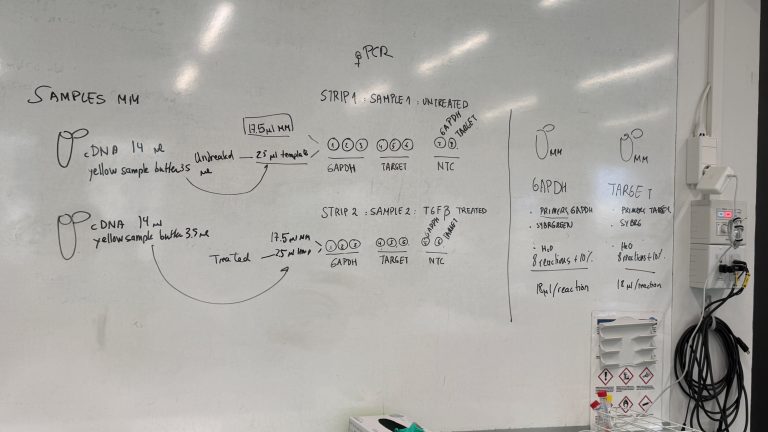 qPCR
SAMPLES MM
cDNA 14 µl
yellow sample buffer 3.5 µl
Untreated
17.5µl MM
2.5 µl template
STRIP 1 : SAMPLE 1 : UNTREATED
1 2 3 4 5 6 7 8
GAPDH TARGET
GAPDH TARGET NTC
cDNA 14µl
yellow sample buffer 3.5 µl
Treated
17.5 µl MM
2.5µl temp
STRIP 2 : SAMPLE 2 : TGFβ TREATED
1 2 3 4 5 6
GAPDH TARGET
GAPDH TARGET NTC
MM
GAPDH
· PRIMERS GAPDH
· SYBRGREEN
· H2O
8 reactions + 10%
18µl/reaction
MM
TARGET
· PRIMERS TARGET
· SYBRG
· H2O
8 reactions + 10%
18 µl/reaction